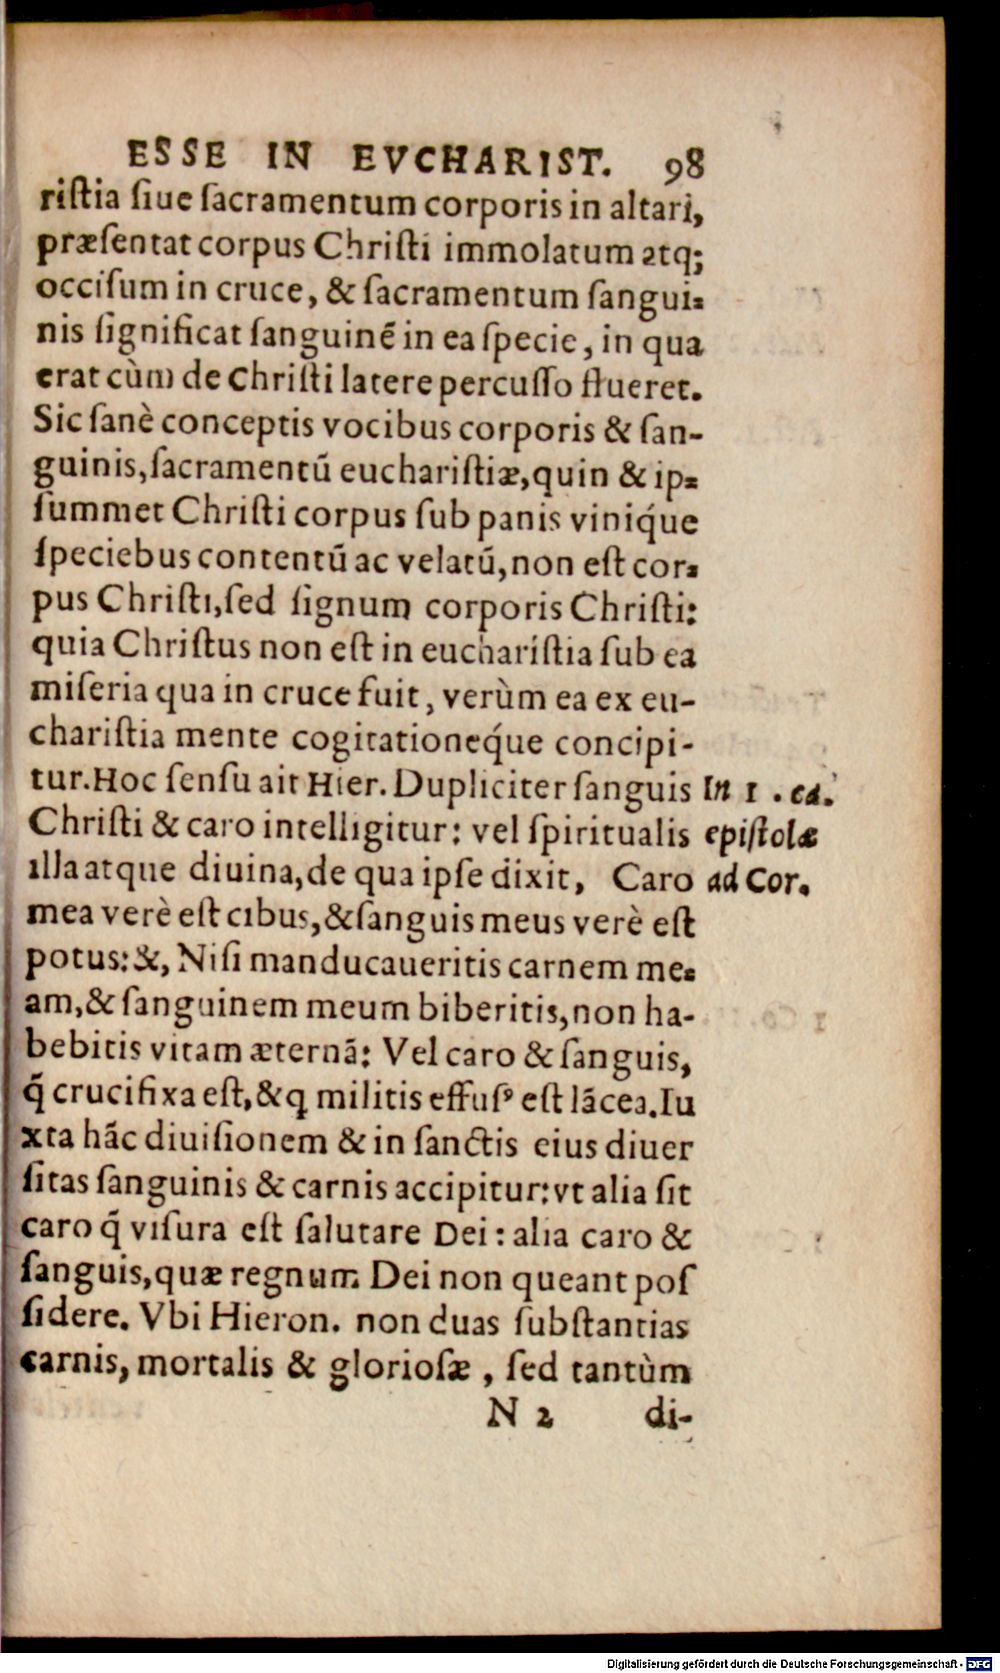 ESSE IN EVCHARIST. 98
riſtia ſiue ſacramentum corporis in altari,
præſentat corpus Chriſti immolatum atq;
occiſum in cruce, & ſacramentum ſangui-
nis ſignificat ſanguinẽ in ea ſpecie, in qua
erat cùm de Chriſti latere percuſſo flueret.
Sic ſanè conceptis vocibus corporis & ſan-
guinis, ſacramentũ euchariſtiæ, quin & ip-
ſummet Chriſti corpus ſub panis viniq́ue
ſpeciebus contentũ ac velatũ, non eſt cor-
pus Chriſti, ſed ſignum corporis Chriſti:
quia Chriſtus non eſt in euchariſtia ſub ea
miſeria qua in cruce fuit, verùm ea ex eu-
chariſtia mente cogitationeq́ue concipi-
tur. Hoc ſenſu ait Hier. Dupliciter ſanguis In 1. ca.
Chriſti & caro intelligitur: vel ſpiritualis epiſtolæ
illa atque diuina, de qua ipſe dixit, Caro ad Cor.
mea verè eſt cibus, & ſanguis meus verè eſt
potus: &, Niſi manducaueritis carnem me-
am, & ſanguinem meum biberitis, non ha-
bebitis vitam æternã: Vel caro & ſanguis,
q̃ crucifixa eſt, & q militis effuſꝰ eſt lãcea. Iu
xta hãc diuiſionem & in ſanctis eius diuer
ſitas ſanguinis & carnis accipitur: vt alia ſit
caro q̃ viſura eſt ſalutare Dei: alia caro &
ſanguis, quæ regnum Dei non queant poſ
ſidere. Vbi Hieron. non duas ſubſtantias
carnis, mortalis & glorioſæ, ſed tantùm
N 2 di-
Digitalisierung gefördert durch die Deutsche Forschungsgemeinschaft - DFG